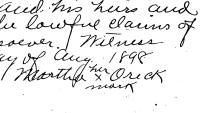 and his heirs and
lawful claims of
soever. Witness
ay of Aug. 1898
her
Martha x Oreck
mark